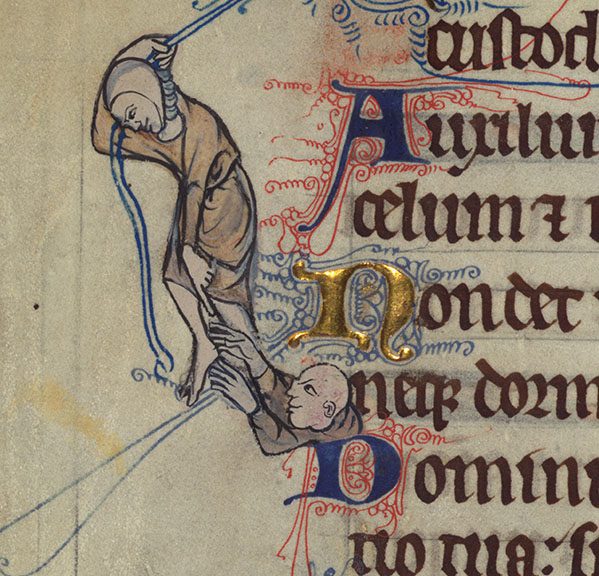 custod
Auxiliu
celum ⁊
Non det
neqꝫ dorm
Domini
tio tua: